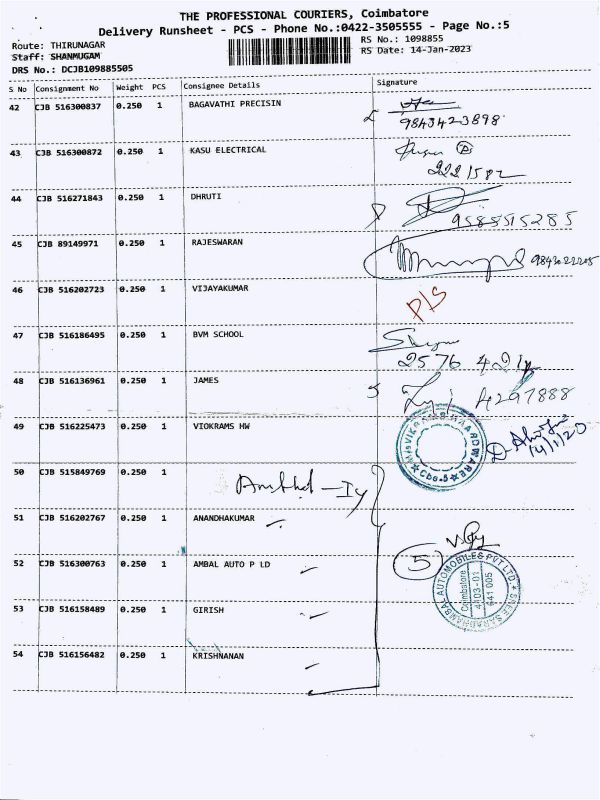 THE PROFESSIONAL COURIERS, Coimbatore
Delivery Runsheet - PCS - Phone No.:0422-3505555 - Page No.:5
Route: THIRUNAGAR
RS No.: 1098855
Staff: SHANMUGAM
RS Date: 14-Jan-2023
DRS No.: DCJB109885505
S No Consignment No Weight PCS Consignee Details Signature
42 CJB 516300837 0.250 1 BAGAVATHI PRECISIN
9843423898
43 CJB 516300872 0.250 1 KASU ELECTRICAL
44 CJB 516271843 0.250 1 DHRUTI
9585515285
45 CJB 89149971 0.250 1 RAJESWARAN
46 CJB 516202723 0.250 1 VIJAYAKUMAR
P/S
47 CJB 516186495 0.250 1 BVM SCHOOL
2576 421
48 CJB 516136961 0.250 1 JAMES
4297888
49 CJB 516225473 0.250 1 VIOKRAMS HW
M/s VIKRAMS HAARDWARE
Cbe-5
14/1/20
50 CJB 515849769 0.250 1
51 CJB 516202767 0.250 1 ANANDHAKUMAR
52 CJB 516300763 0.250 1 AMBAL AUTO P LD
5
AMBAL AUTOMOBILES PVT LTD.
Coimbatore
641 005
53 CJB 516158489 0.250 1 GIRISH
54 CJB 516156482 0.250 1 KRISHNANAN